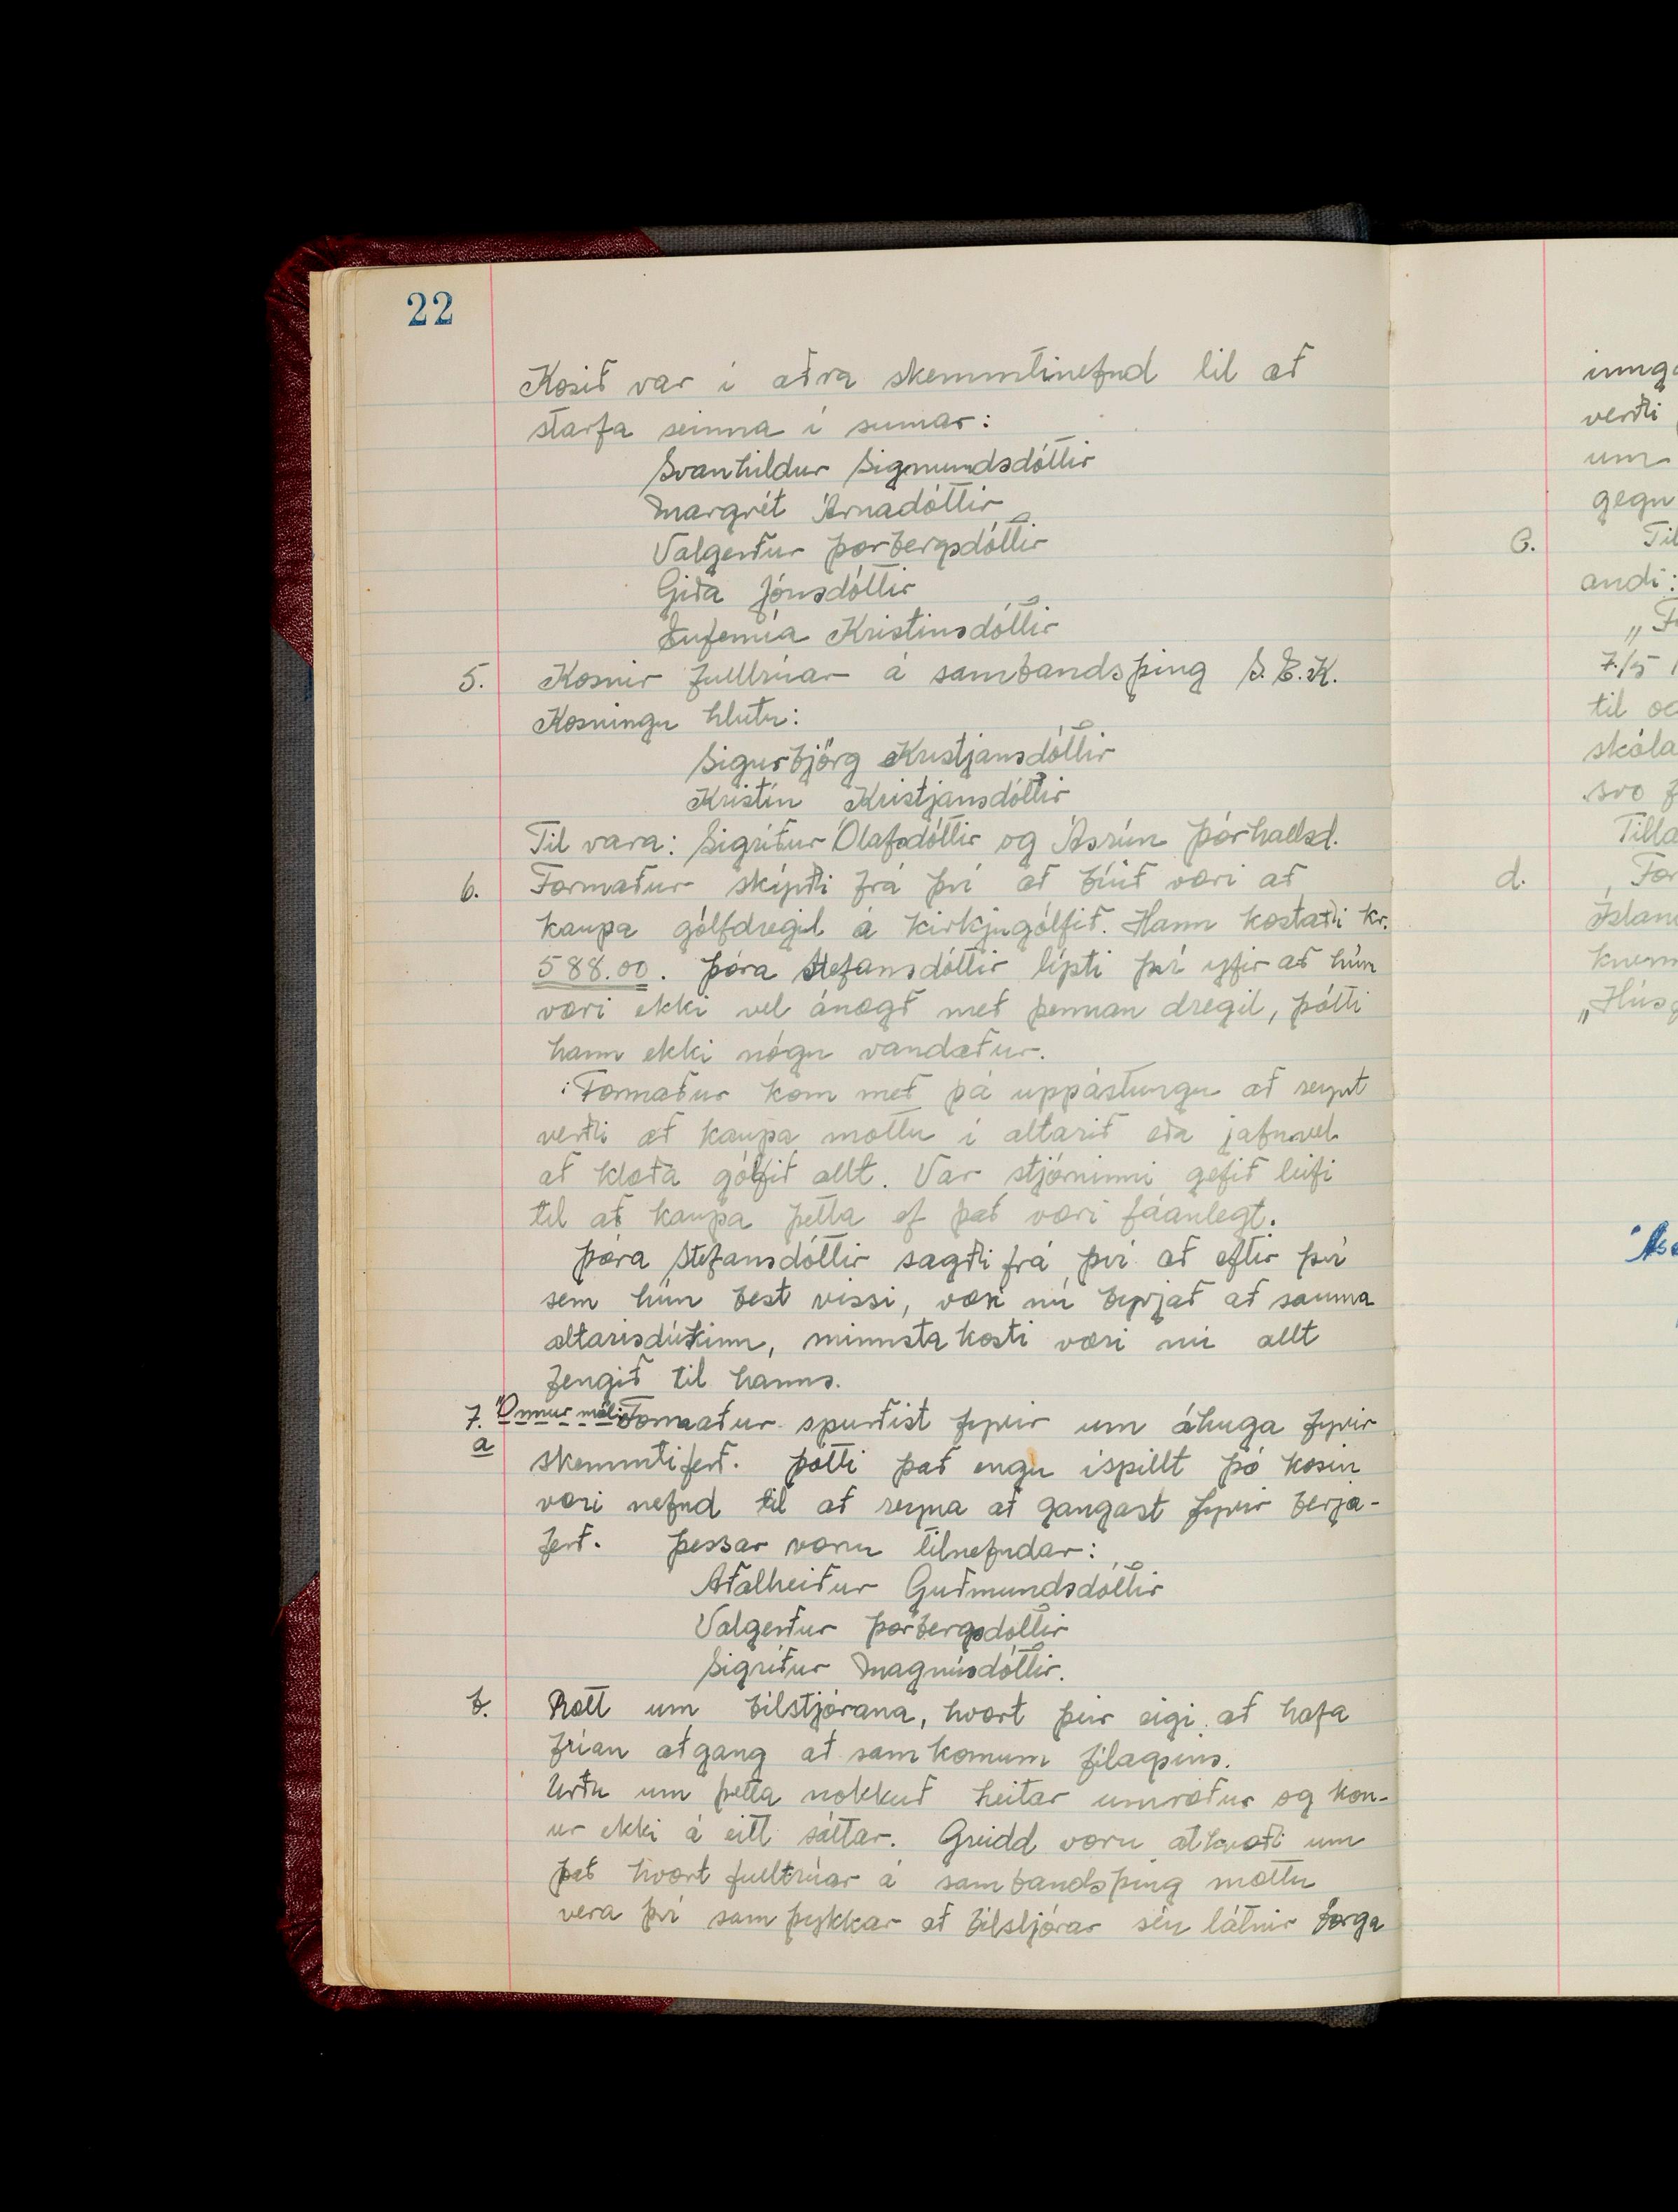 22
Kosið var í aðra skemmtinefnd til að
starfa seinna í sumar:
Svanhildur Sigmundsdóttir
Margrét Árnadóttir
Valgerður Þorbergsdóttir
Gíða Jónsdóttir
Eufemía Kristinsdóttir
5. Kosnir fulltrúar á sambandsþing S.B.K.
Kosningu hlutu:
Sigurbjörg Kristjánsdóttir
Kristín Kristjánsdóttir
Til vara: Sigríður Ólafsdóttir og Ásrún Þórhallsd.
6. Formaður skýrði frá því að búið væri að
kaupa gólfdregil á kirkjugólfið. Hann kostaði kr.
588.00. Þóra Stefánsdóttir lýsti því yfir að hún
væri ekki vel ánægð með þennan dregil, þótti
hann ekki nógu vandaður.
Formaður kom með þá uppástungu að reynt
verði að kaupa mottu í altarið eða jafnvel
að klæða gólfið allt. Var stjórninni gefið leifi
til að kaupa þetta ef það væri fáanlegt.
Þóra Stefánsdóttir sagði frá því að eftir því
sem hún best vissi, væri nú byrjað að sauma
altarisdúkinn, minnsta kosti væri nú allt
fengið til hanns.
7. Önnur mál: Formaður spurðist fyrir um áhuga fyrir
a skemmtiferð. Þótti það engu íspillt þó kosin
væri nefnd til að reyna að gangast fyrir berja-
ferð. Þessar voru tilnefndar:
Aðalheiður Guðmundsdóttir
Valgerður Þorbergsdóttir
Sigríður Magnúsdóttir.
b. Rætt um bílstjórana, hvort þeir eigi að hafa
frían aðgang að samkomum félagsins.
Urðu um þetta nokkuð heitar umræður og kon-
ur ekki á eitt sáttar. Greidd voru atkvæði um
það hvort fulltrúar á sambandsþing mættu
vera því samþykkar að bílstjórar séu látnir borga
verði
um
gegn
C. Til
andi:
7./5
til
skóla
svo
d. For
"Hús